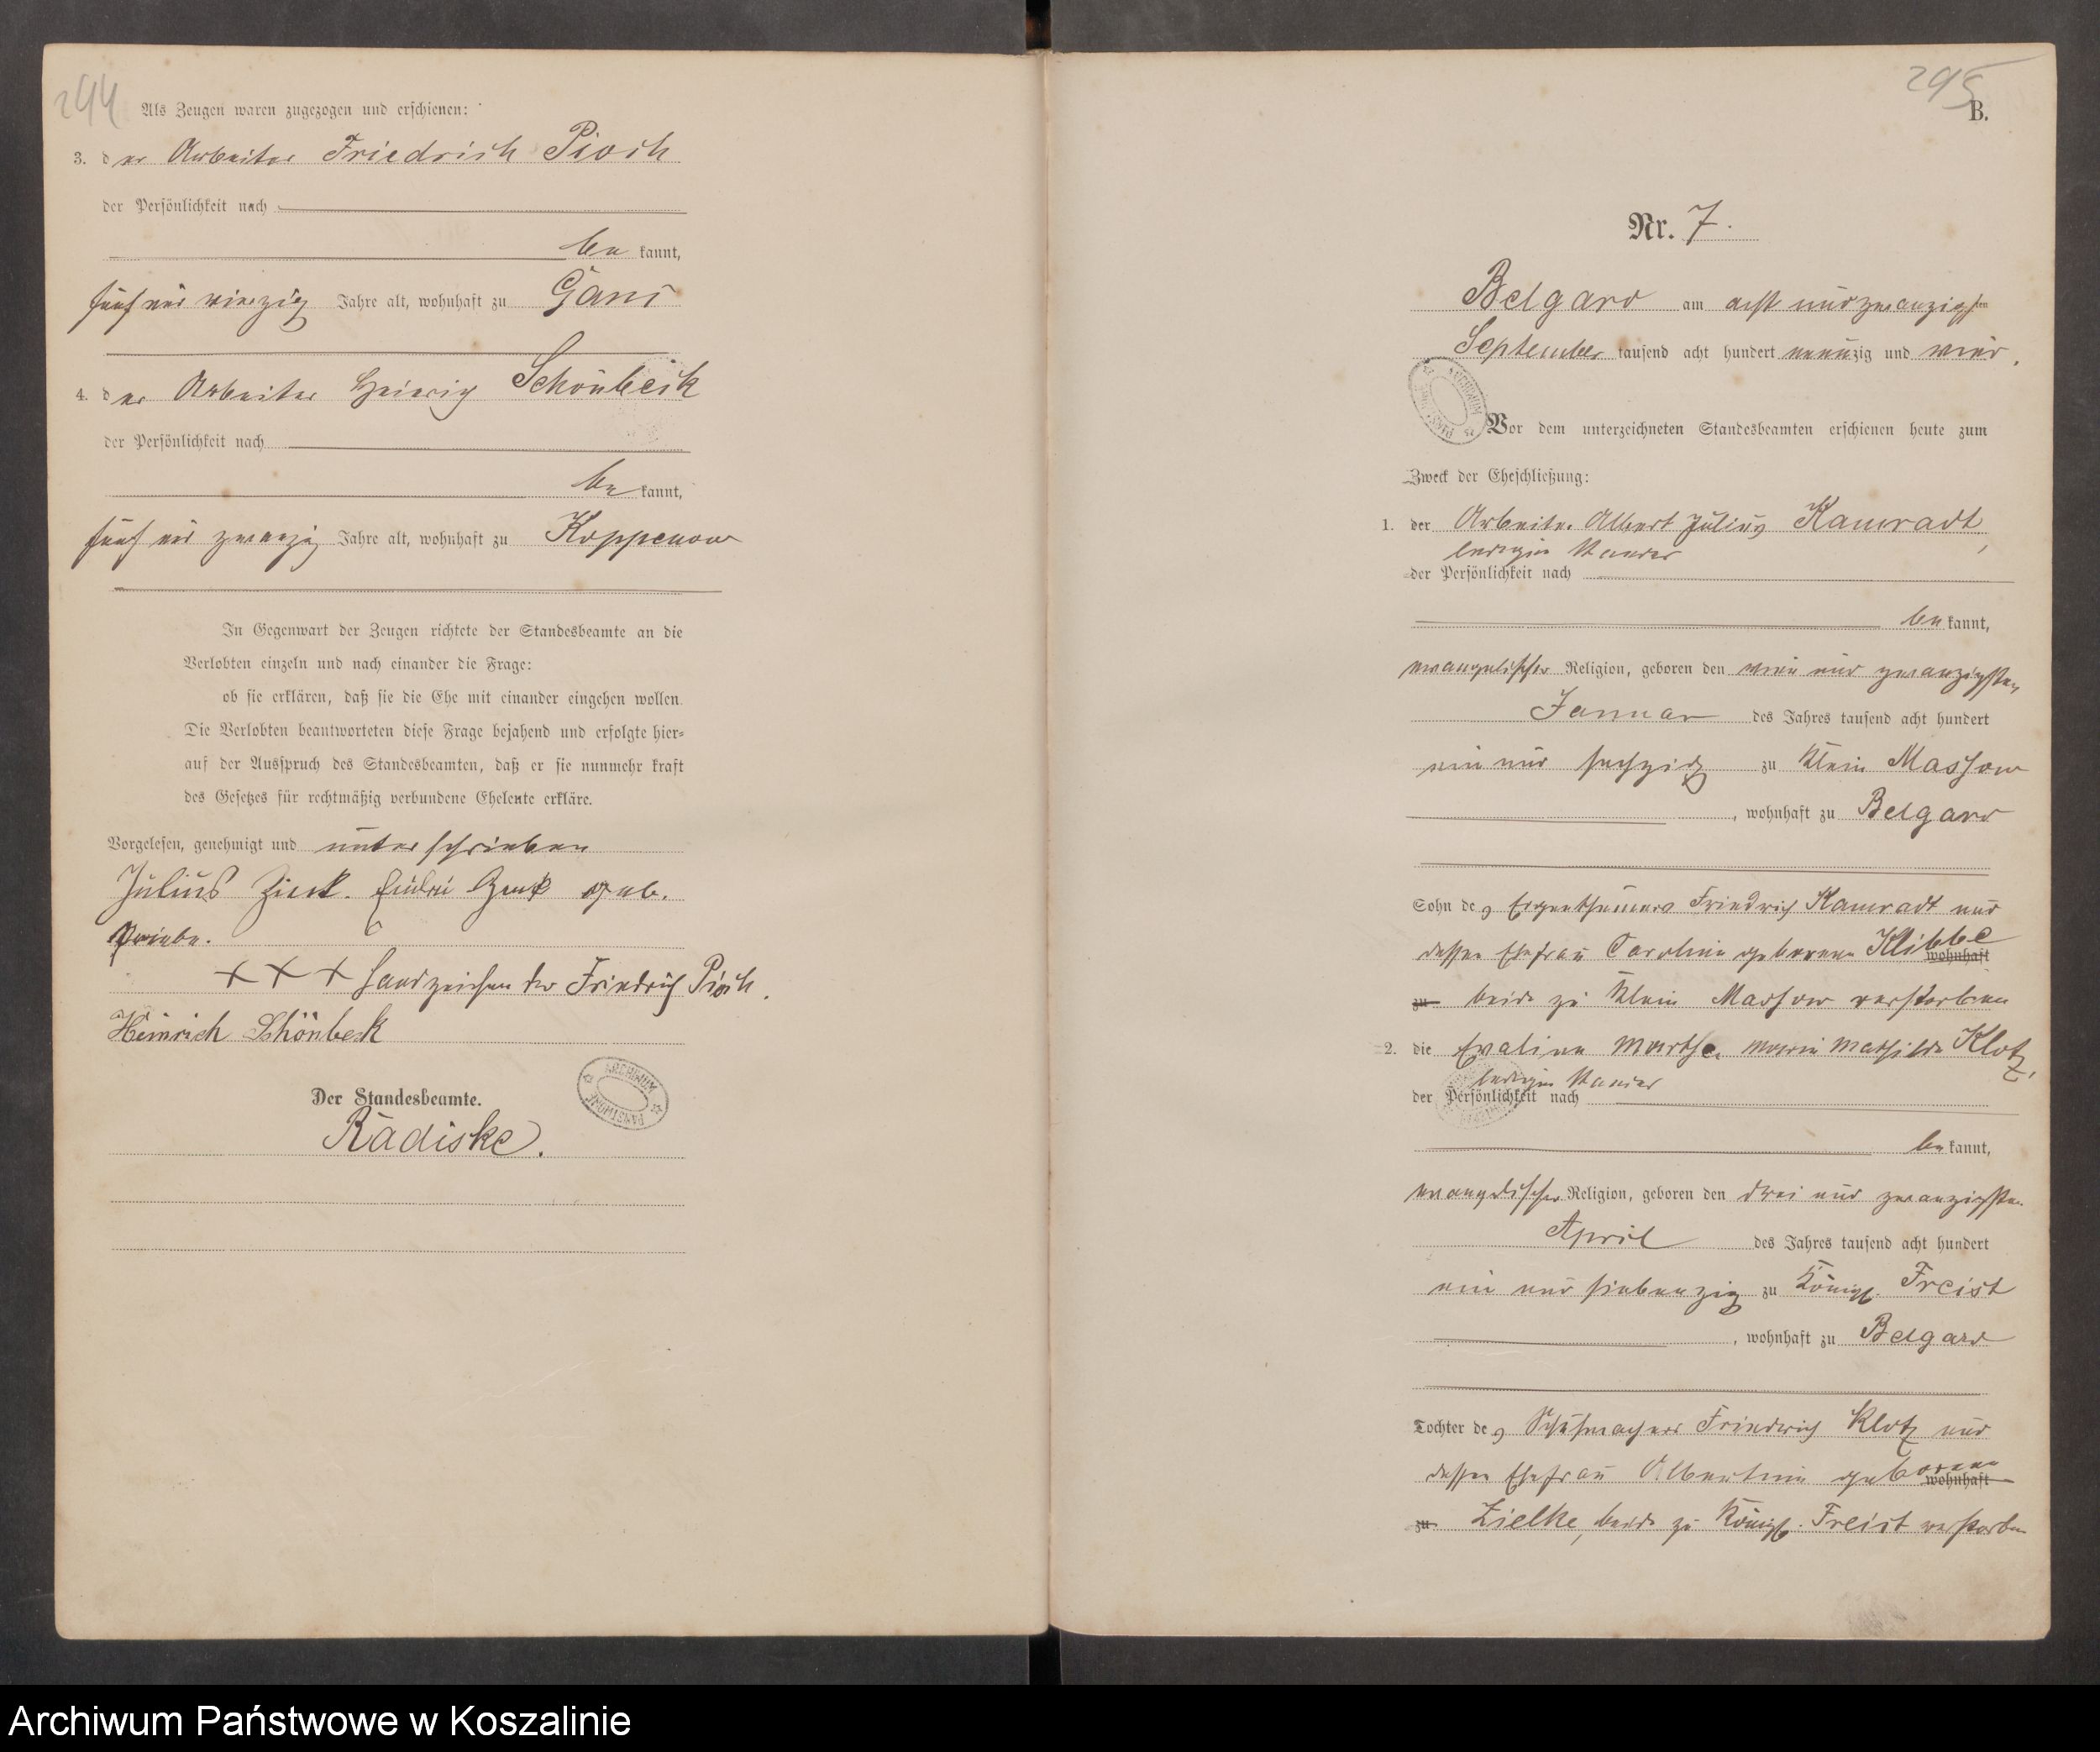 244
Als Zeugen waren zugezogen und erschienen:
3. der Arbeiter Friedrich Pioch
der Persönlichkeit nach
be kannt,
fünf und vierzig Jahre alt, wohnhaft zu Gans
4. der Arbeiter Heinrich Schönbeck
der Persönlichkeit nach
be kannt,
fünf und zwanzig Jahre alt, wohnhaft zu Koppenow
In Gegenwart der Zeugen richtete der Standesbeamte an die
Verlobten einzeln und nach einander die Frage:
ob sie erklären, daß sie die Ehe mit einander eingehen wollen.
Die Verlobten beantworteten diese Frage bejahend und erfolgte hier-
auf der Ausspruch des Standesbeamten, daß er sie nunmehr kraft
des Gesetzes für rechtmäßig verbundene Eheleute erkläre.
Vorgelesen, genehmigt und unterschrieben
Julius geb.
Priebe.
+++ Handzeichen des Friedrich Pioch.
Heinrich Schönbeck
Der Standesbeamte.
Radiske.
ARCHIWUM PAŃSTWOWE
295
B.
Nr. 7.
Belgard am acht und zwanzigsten
September tausend acht hundert neunzig und vier.
ARCHIWUM PAŃSTWOWE
Vor dem unterzeichneten Standesbeamten erschienen heute zum
Zweck der Eheschließung:
1. der Arbeiter Albert Julius Kamradt,
ledigen Standes
der Persönlichkeit nach
be kannt,
evangelischer Religion, geboren den vier und zwanzigsten
Januar des Jahres tausend acht hundert
ein und sechzig zu Klein Massow
, wohnhaft zu Belgard
Sohn des Eigenthümers Friedrich Kamradt und
dessen Ehefrau Caroline geborene Klibbe wohnhaft
zu beide zu Klein Massow verstorben
2. die Evaline Martha Marie Mathilde Klotz,
ledigen Standes
der Persönlichkeit nach
be kannt,
evangelischer Religion, geboren den drei und zwanzigsten
April des Jahres tausend acht hundert
ein und siebenzig zu Königl. Freist
, wohnhaft zu Belgard
Tochter des Schuhmachers Friedrich Klotz und
dessen Ehefrau Albertine geborene wohnhaft
zu Zielke, beide zu Königl. Freist verstorben
Archiwum Państwowe w Koszalinie